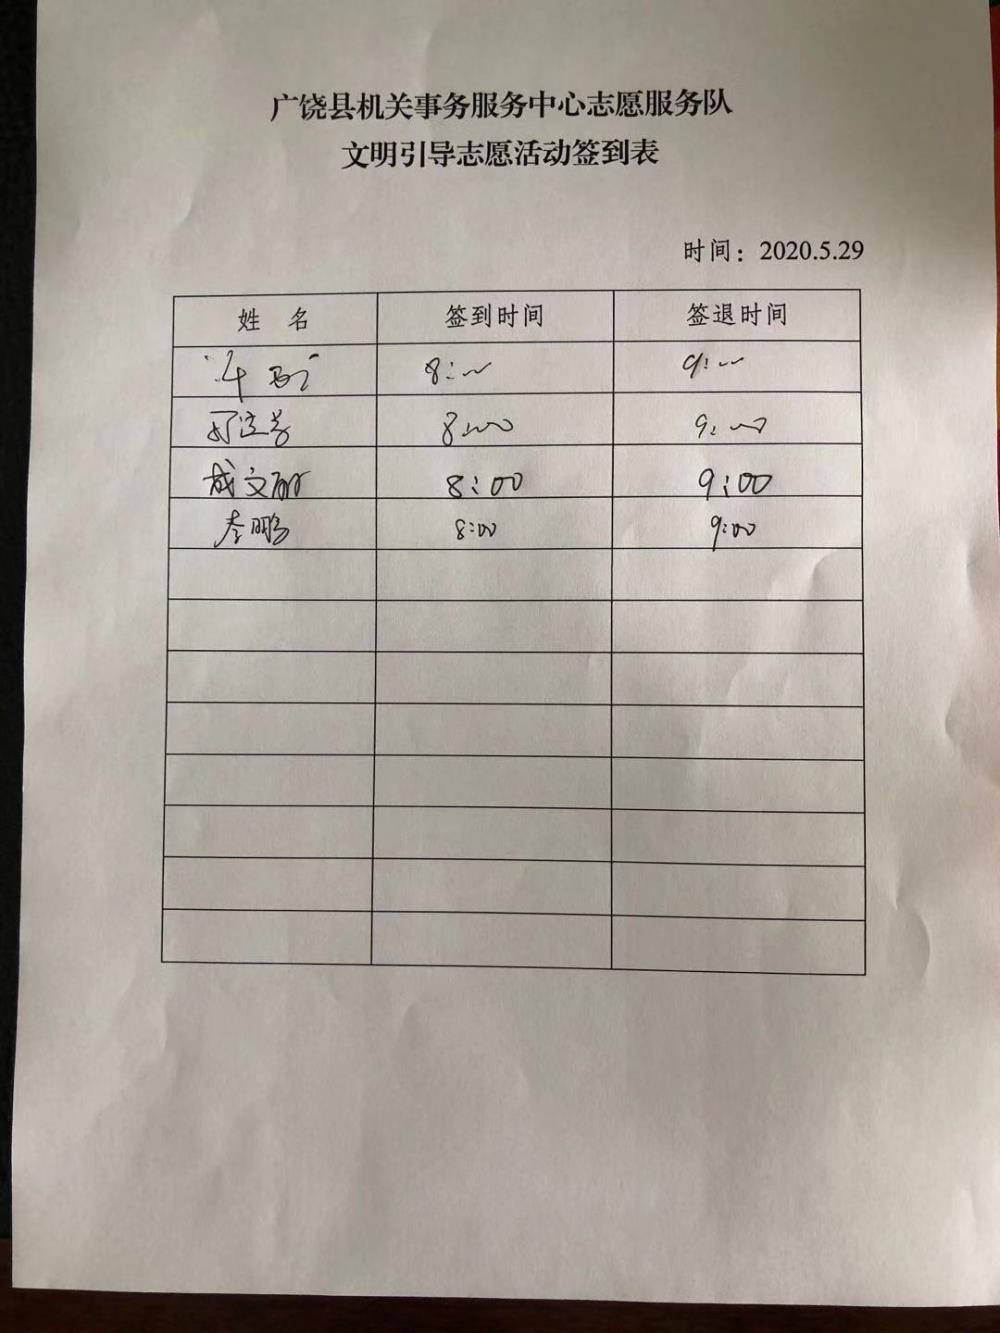 广饶县机关事务服务中心志愿服务队
文明引导志愿活动签到表
时间：2020.5.29
姓 名 签到时间 签退时间
8:00 9:00
8:00 9:00
成文丽 8:00 9:00
李鹏 8:00 9:00